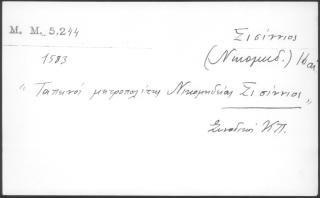 M. M. 5,244
Σισίννιος
(Νικομηδ.) 16 αἰ
1583
"Ταπεινοί μητροπολίτης Νικομηδείας Σισίννιος"
Συνοδικοί Κ.Π.